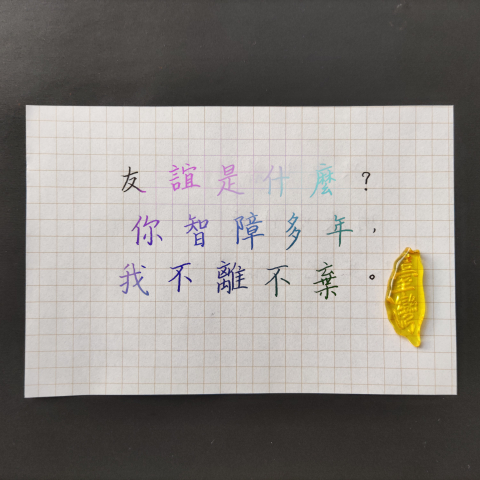 友誼是什麼？
你智障多年，
我不離不棄。